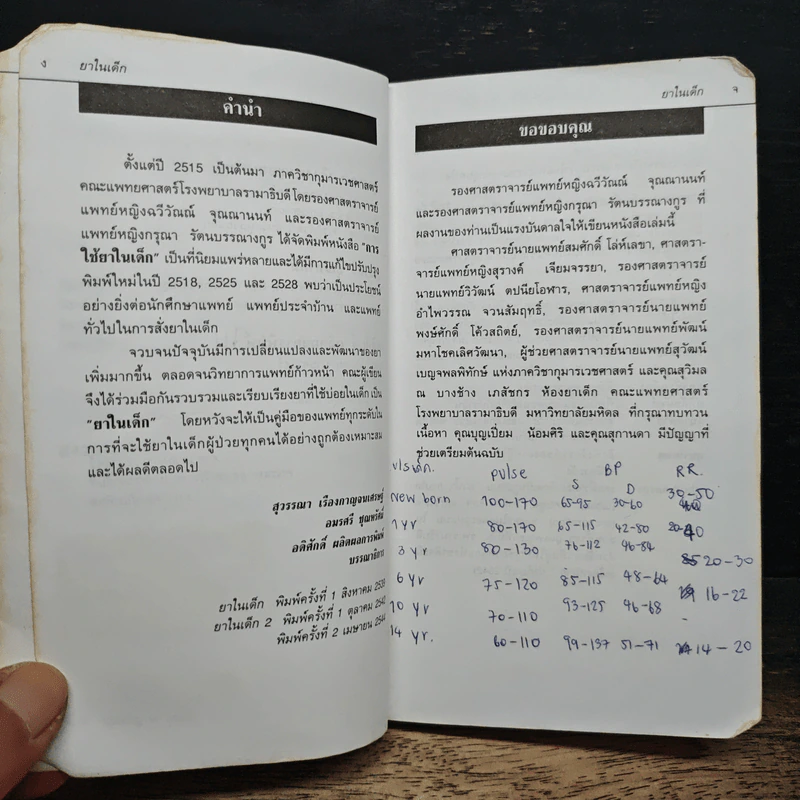 ง ยาในเด็ก
คำนำ
ตั้งแต่ปี 2515 เป็นต้นมา ภาควิชากุมารเวชศาสตร์
คณะแพทยศาสตร์โรงพยาบาลรามาธิบดี โดยรองศาสตราจารย์
แพทย์หญิงฉวีวัณณ์ จุณณานนท์ และรองศาสตราจารย์
แพทย์หญิงกรุณา รัตนบรรณางกูร ได้จัดพิมพ์หนังสือ "การ
ใช้ยาในเด็ก" เป็นที่นิยมแพร่หลายและได้มีการแก้ไขปรับปรุง
พิมพ์ใหม่ในปี 2518, 2525 และ 2528 พบว่าเป็นประโยชน์
อย่างยิ่งต่อนักศึกษาแพทย์ แพทย์ประจำบ้าน และแพทย์
ทั่วไปในการสั่งยาในเด็ก
จวบจนปัจจุบันมีการเปลี่ยนแปลงและพัฒนาของยา
เพิ่มมากขึ้น ตลอดจนวิทยาการแพทย์ก้าวหน้า คณะผู้เขียน
จึงได้ร่วมมือกันรวบรวมและเรียบเรียงยาที่ใช้บ่อยในเด็ก เป็น
"ยาในเด็ก" โดยหวังจะให้เป็นคู่มือของแพทย์ทุกระดับใน
การที่จะใช้ยาในเด็กผู้ป่วยทุกคนได้อย่างถูกต้องเหมาะสม
และได้ผลดีตลอดไป
สุวรรณา เรืองกาญจนเศรษฐ์
อมรศรี ชุณหรัศมิ์
อดิศักดิ์ ผลิตผลการพิมพ์
บรรณาธิการ
ยาในเด็ก พิมพ์ครั้งที่ 1 สิงหาคม 2539
ยาในเด็ก 2 พิมพ์ครั้งที่ 1 ตุลาคม 2542
พิมพ์ครั้งที่ 2 เมษายน 2544
ยาในเด็ก จ
ขอขอบคุณ
รองศาสตราจารย์แพทย์หญิงฉวีวัณณ์ จุณณานนท์
และรองศาสตราจารย์แพทย์หญิงกรุณา รัตนบรรณางกูร ที่
ผลงานของท่านเป็นแรงบันดาลใจให้เขียนหนังสือเล่มนี้
ศาสตราจารย์นายแพทย์สมศักดิ์ โล่ห์เลขา, ศาสตรา-
จารย์แพทย์หญิงสุรางค์ เจียมจรรยา, รองศาสตราจารย์
นายแพทย์วิวัฒน์ ตปนียโอฬาร, ศาสตราจารย์แพทย์หญิง
อำไพวรรณ จวนสัมฤทธิ์, รองศาสตราจารย์นายแพทย์
พงษ์ศักดิ์ โค้วสถิตย์, รองศาสตราจารย์นายแพทย์พัฒน์
มหาโชคเลิศวัฒนา, ผู้ช่วยศาสตราจารย์นายแพทย์สุวัฒน์
เบญจพลพิทักษ์ แห่งภาควิชากุมารเวชศาสตร์ และคุณสุวิมล
ณ บางช้าง เภสัชกร ห้องยาเด็ก คณะแพทยศาสตร์
โรงพยาบาลรามาธิบดี มหาวิทยาลัยมหิดล ที่กรุณาทบทวน
เนื้อหา คุณบุญเปี่ยม น้อมศิริ และคุณสุกานดา มีปัญญาที่
ช่วยเตรียมต้นฉบับ
v/s เด็ก. pulse BP RR.
S D
New born 100-170 65-95 30-60 30-50
1 yr 80-170 65-115 42-80 20-40
3 yr 80-130 76-112 46-84 20-30
6 yr 75-120 85-115 48-64 16-22
10 yr 70-110 93-125 46-68
14 yr. 60-110 99-137 51-71 14-20